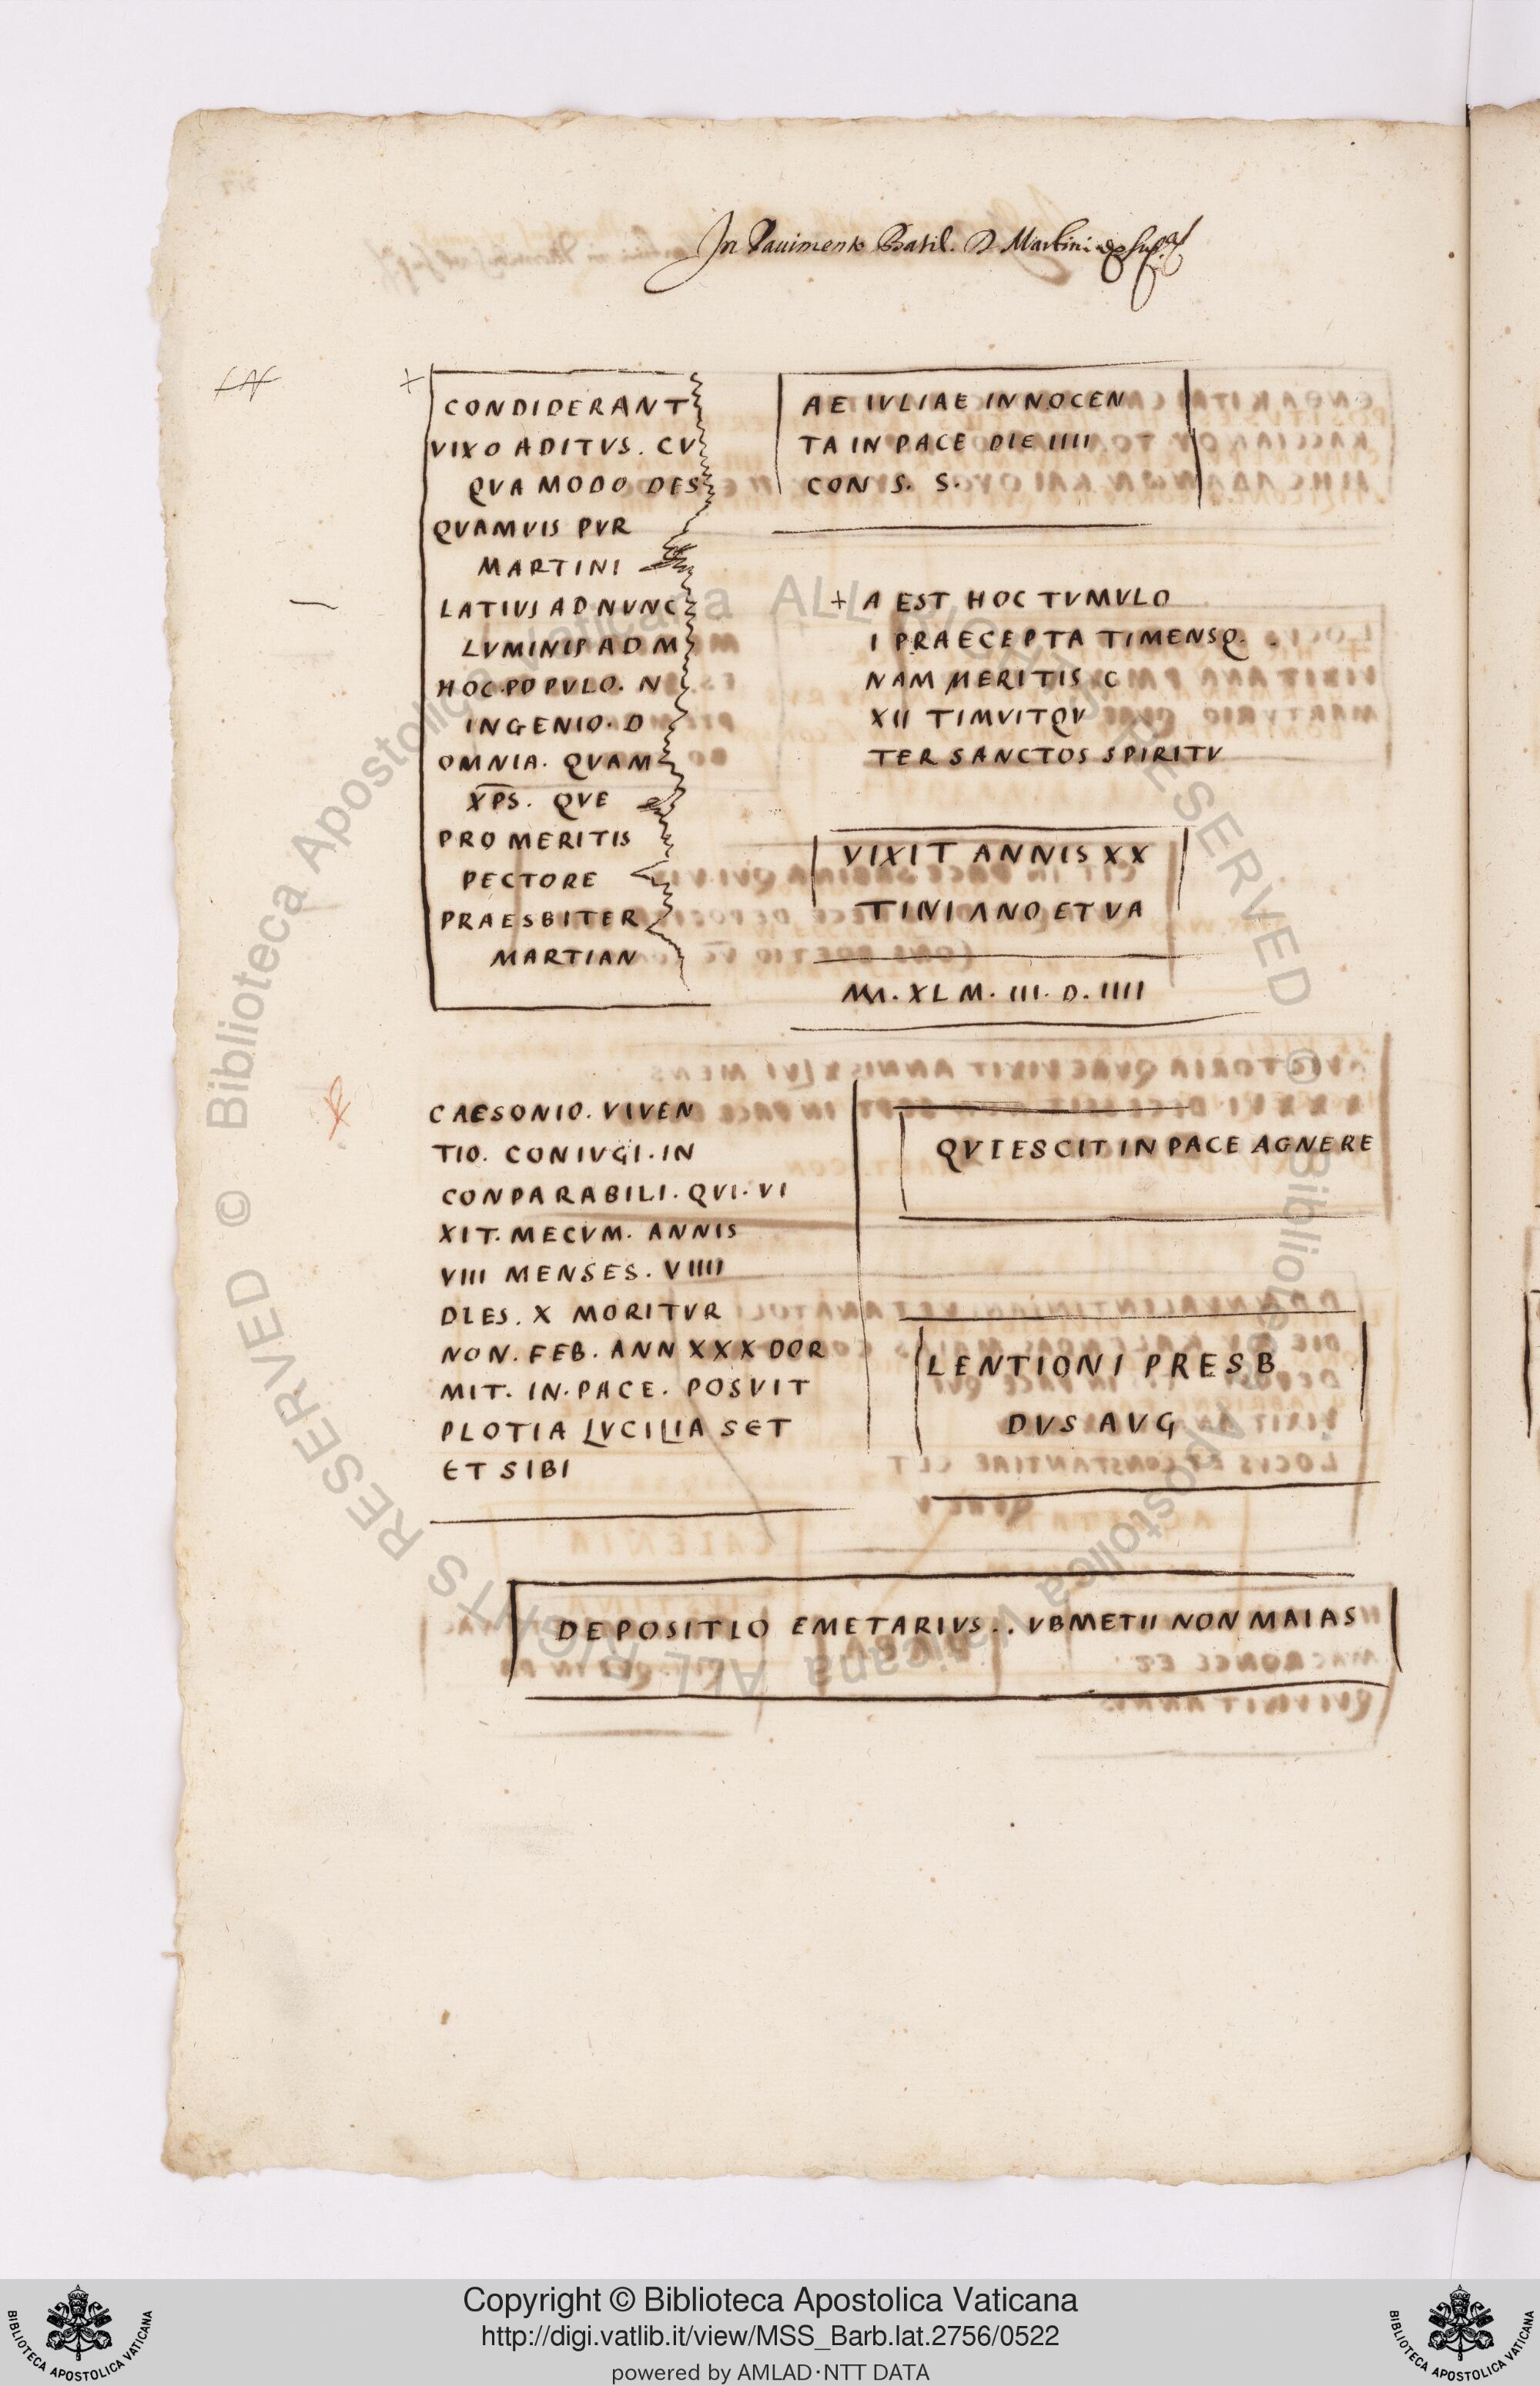 In Pauimento Basil. D. Martini
CONDIDERANT
VIXO ADITVS. CV
QVA MODO DES
QVAMVIS PVR
MARTINI
LATIVS AD NVNC
LVMINIS AD M
HOC. POPVLO. N
INGENIO. D
OMNIA. QVAM
XPS. QVE
PRO MERITIS
PECTORE
PRAESBITER
MARTIAN
AE IVLIAE INNOCEN
TA IN PACE DIE IIII
CON S. S.
+ A EST HOC TVMVLO
I PRAECEPTA TIMENSQ. .
NAM MERITIS C
XII TIMVITQV
TER SANCTOS SPIRITV
VIXIT ANNIS XX
TINIANO ET VA
M. XL M. III. D. IIII
CAESONIO. VIVEN
TIO. CONIVGI. IN
CONPARABILI. QVI. VI
XIT. MECVM. ANNIS
VIII MENSES. VIIII
DIES. X MORITVR
NON. FEB. ANN XXX DOR
MIT. IN. PACE. POSVIT
PLOTIA LVCILIA SET
ET SIBI
QVIESCIT IN PACE AGNERE
LENTIONI PRESB
DVS AVG
DEPOSITIO EMETARIVS . . VBMETII NON MAIAS
© Biblioteca Apostolica Vaticana ALL RIGHTS RESERVED © Biblioteca Apostolica Vaticana ALL RIGHTS RESERVED
Copyright © Biblioteca Apostolica Vaticana
http://digi.vatlib.it/view/MSS_Barb.lat.2756/0522
powered by AMLAD·NTT DATA
BIBLIOTECA APOSTOLICA VATICANA
BIBLIOTECA APOSTOLICA VATICANA